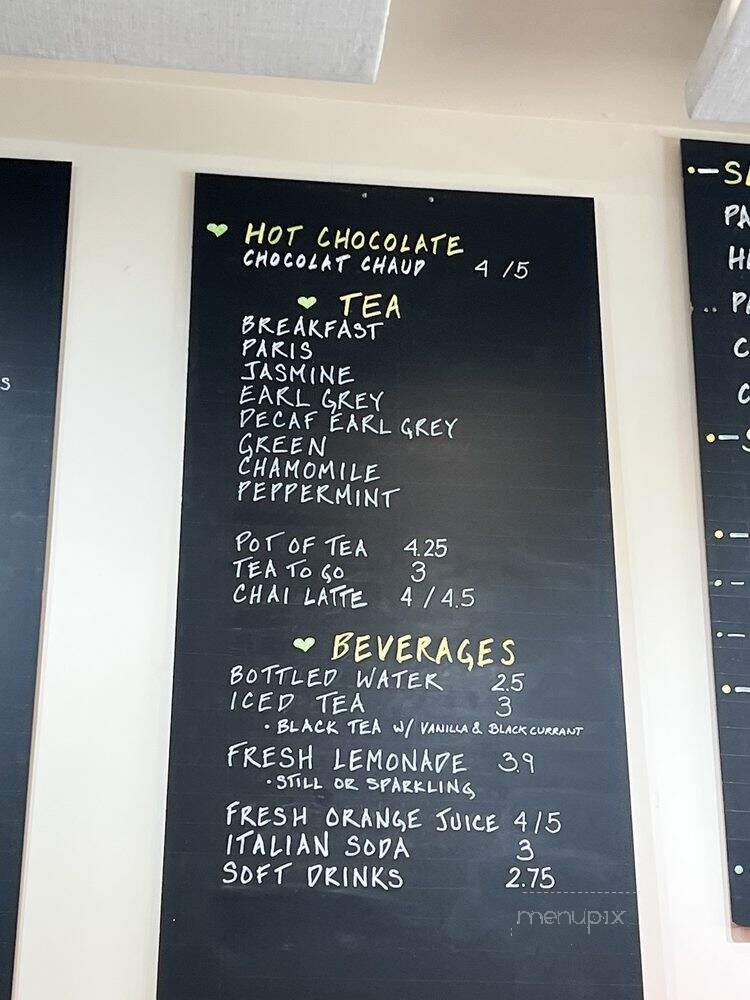 HOT CHOCOLATE
CHOCOLAT CHAUD 4 /5
TEA
BREAKFAST
PARIS
JASMINE
EARL GREY
DECAF EARL GREY
GREEN
CHAMOMILE
PEPPERMINT
POT OF TEA 4.25
TEA TO GO 3
CHAI LATTE 4 / 4.5
BEVERAGES
BOTTLED WATER 2.5
ICED TEA 3
• BLACK TEA W/ VANILLA & BLACK CURRANT
FRESH LEMONADE 3.9
• STILL OR SPARKLING
FRESH ORANGE JUICE 4/5
ITALIAN SODA 3
SOFT DRINKS 2.75
menupix